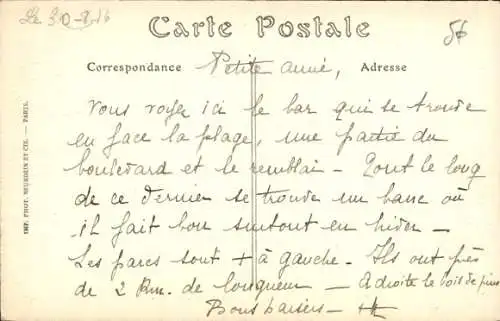 Le 30-8-16
Carte Postale
Correspondance
Petite amie,
Adresse
Vous voyez ici le bar qui se trouve
en face la plage, une partie du
boulevard et le remblai - Tout le long
de ce dernier se trouve un banc où
il fait bon surtout en hiver -
Les parcs sont + à gauche - Ils ont près
de 2 Km. de longueur - A droite le bois de pins
Bons baisers -
IMP. PHOT. NEURDEIN ET CIE. — PARIS.